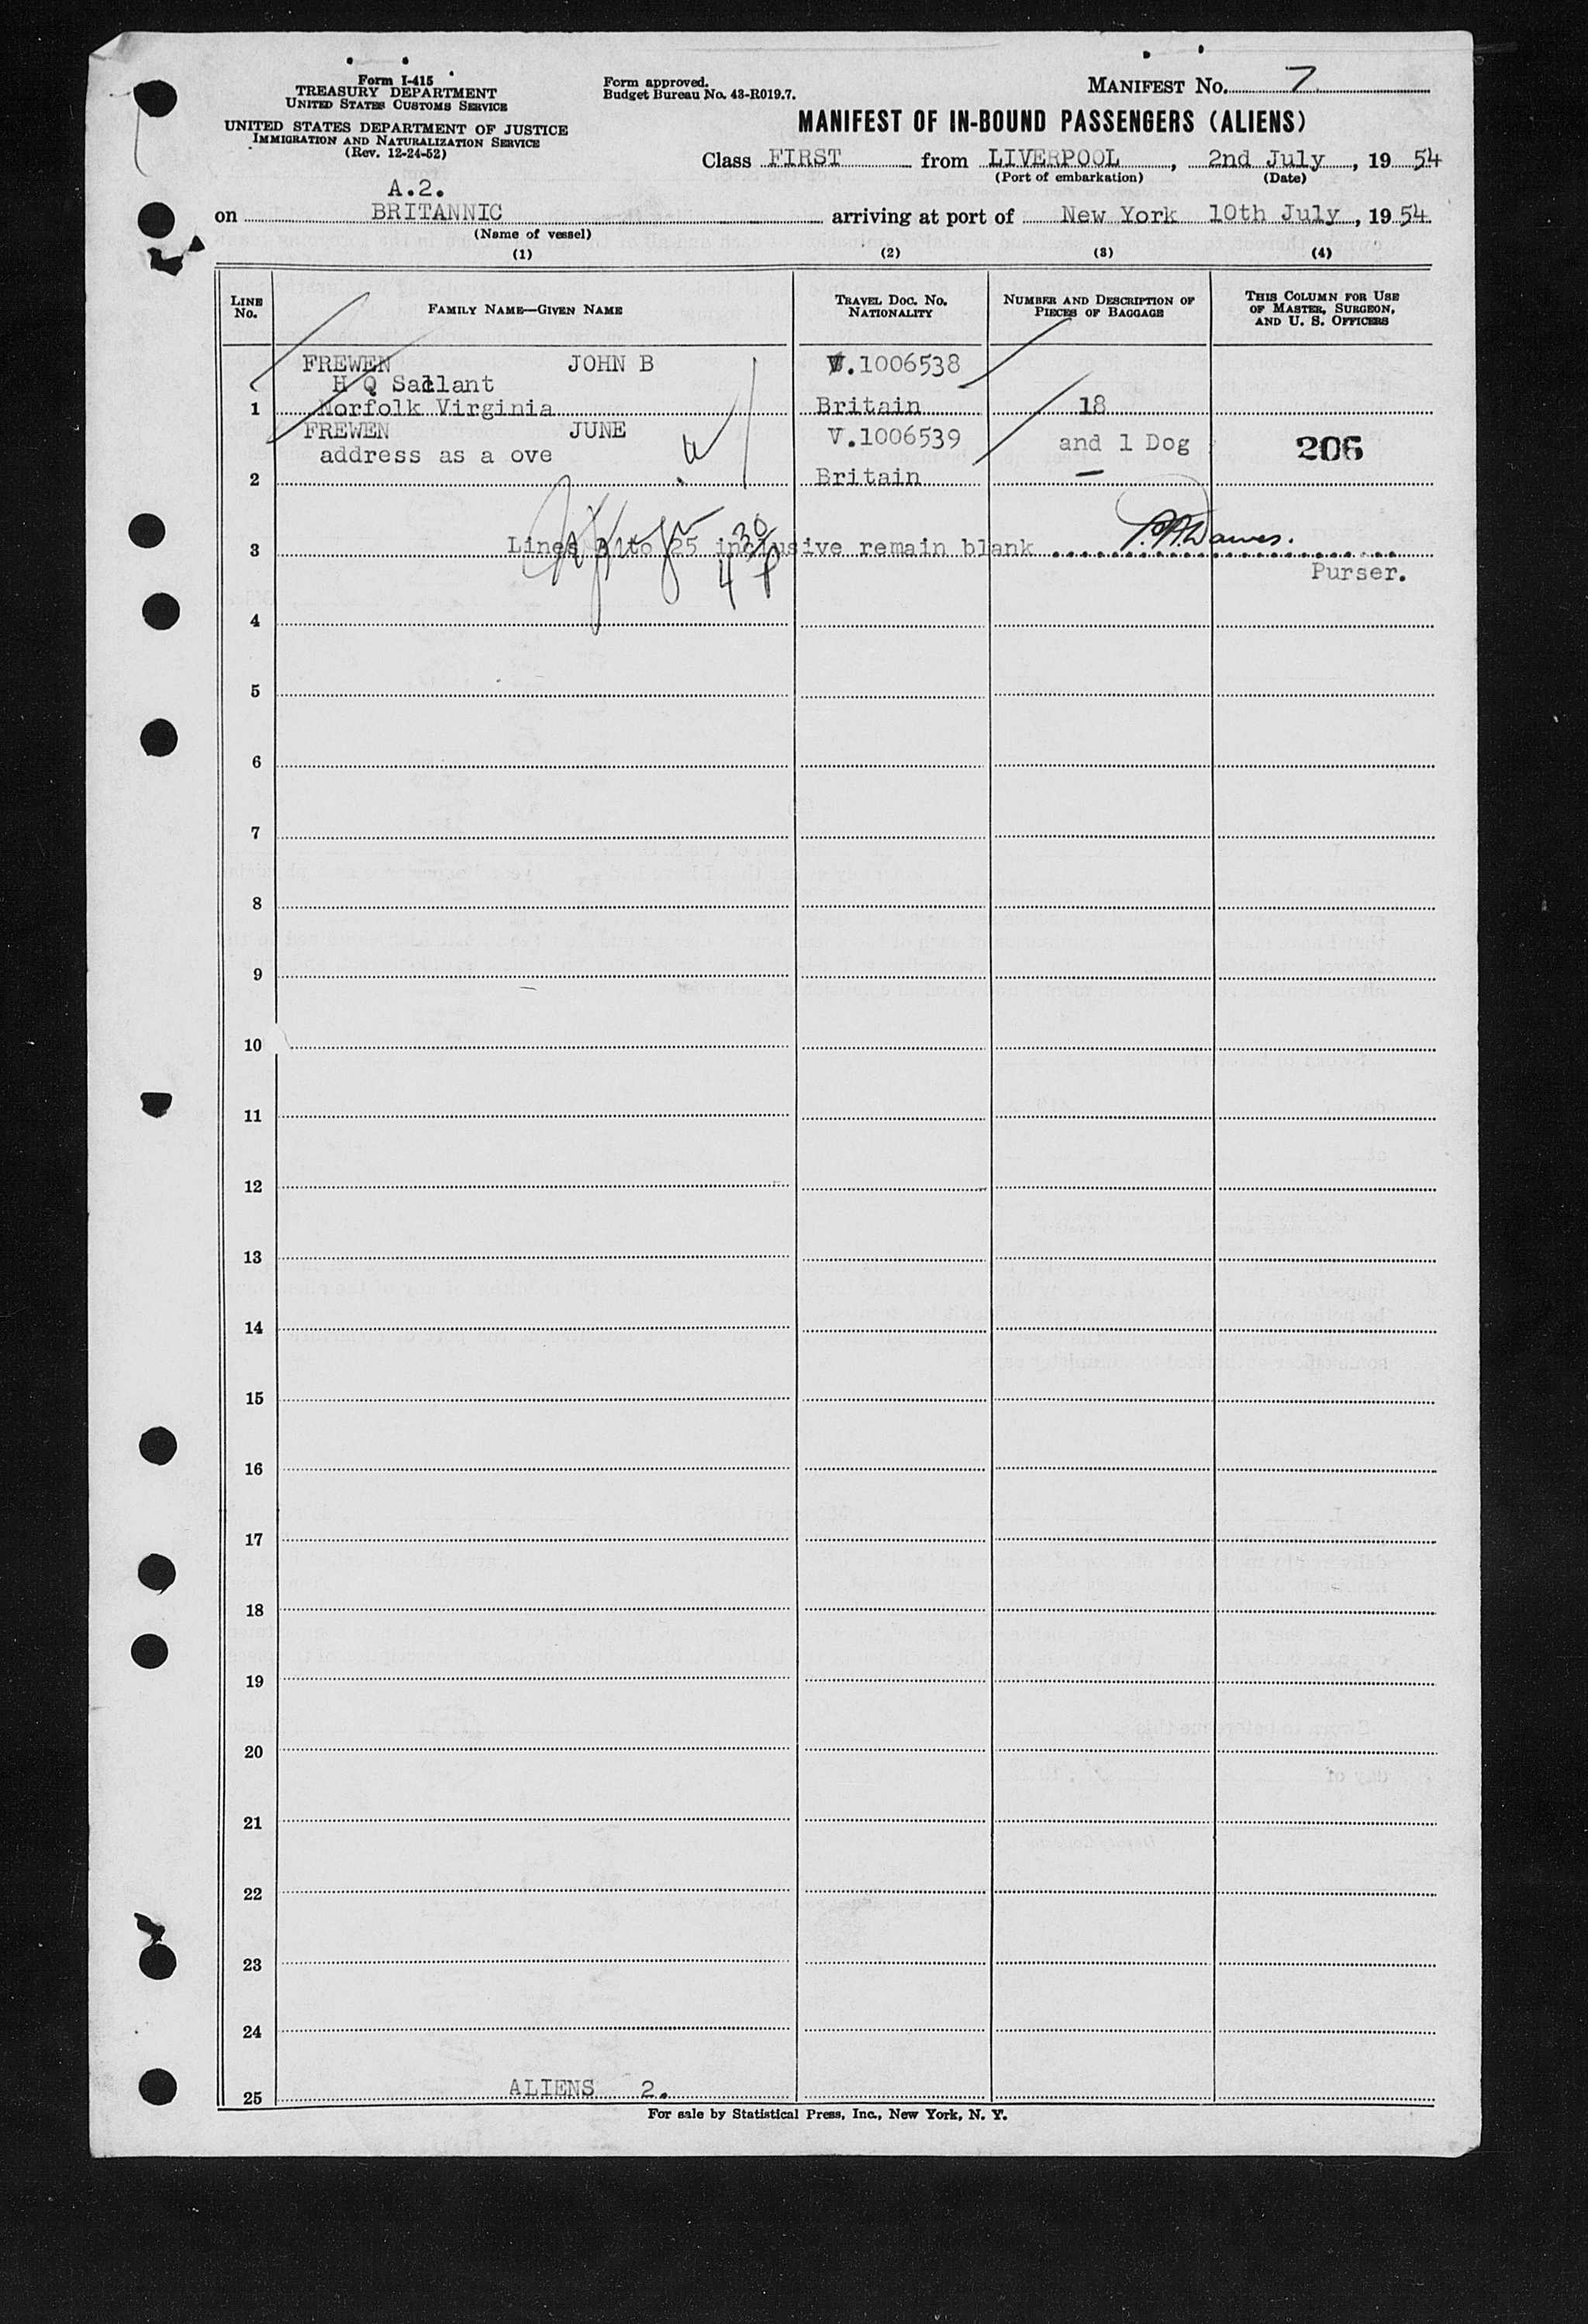 Form I-415
TREASURY DEPARTMENT
UNITED STATES CUSTOMS SERVICE
UNITED STATES DEPARTMENT OF JUSTICE
IMMIGRATION AND NATURALIZATION SERVICE
(Rev. 12-24-52)
Form approved.
Budget Bureau No. 43-R019.7.
MANIFEST No. 7
MANIFEST OF IN-BOUND PASSENGERS (ALIENS)
Class FIRST from LIVERPOOL, 2nd July, 19 54
(Port of embarkation) (Date)
A.2.
on BRITANNIC arriving at port of New York 10th July, 19 54
(Name of vessel)
(1) (2) (3) (4)
LINE No. FAMILY NAME—GIVEN NAME TRAVEL DOC. NO. NATIONALITY NUMBER AND DESCRIPTION OF PIECES OF BAGGAGE THIS COLUMN FOR USE OF MASTER, SURGEON, AND U. S. OFFICERS
FREWEN JOHN B V.1006538
H Q Saclant
1 Norfolk Virginia Britain 18
FREWEN JUNE V.1006539 and 1 Dog 206
address as a ove
2 Britain
3 Lines 3 to 25 inclusive remain blank
Purser.
4 30 P
4
5
6
7
8
9
10
11
12
13
14
15
16
17
18
19
20
21
22
23
24
25 ALIENS 2.
For sale by Statistical Press, Inc., New York, N. Y.